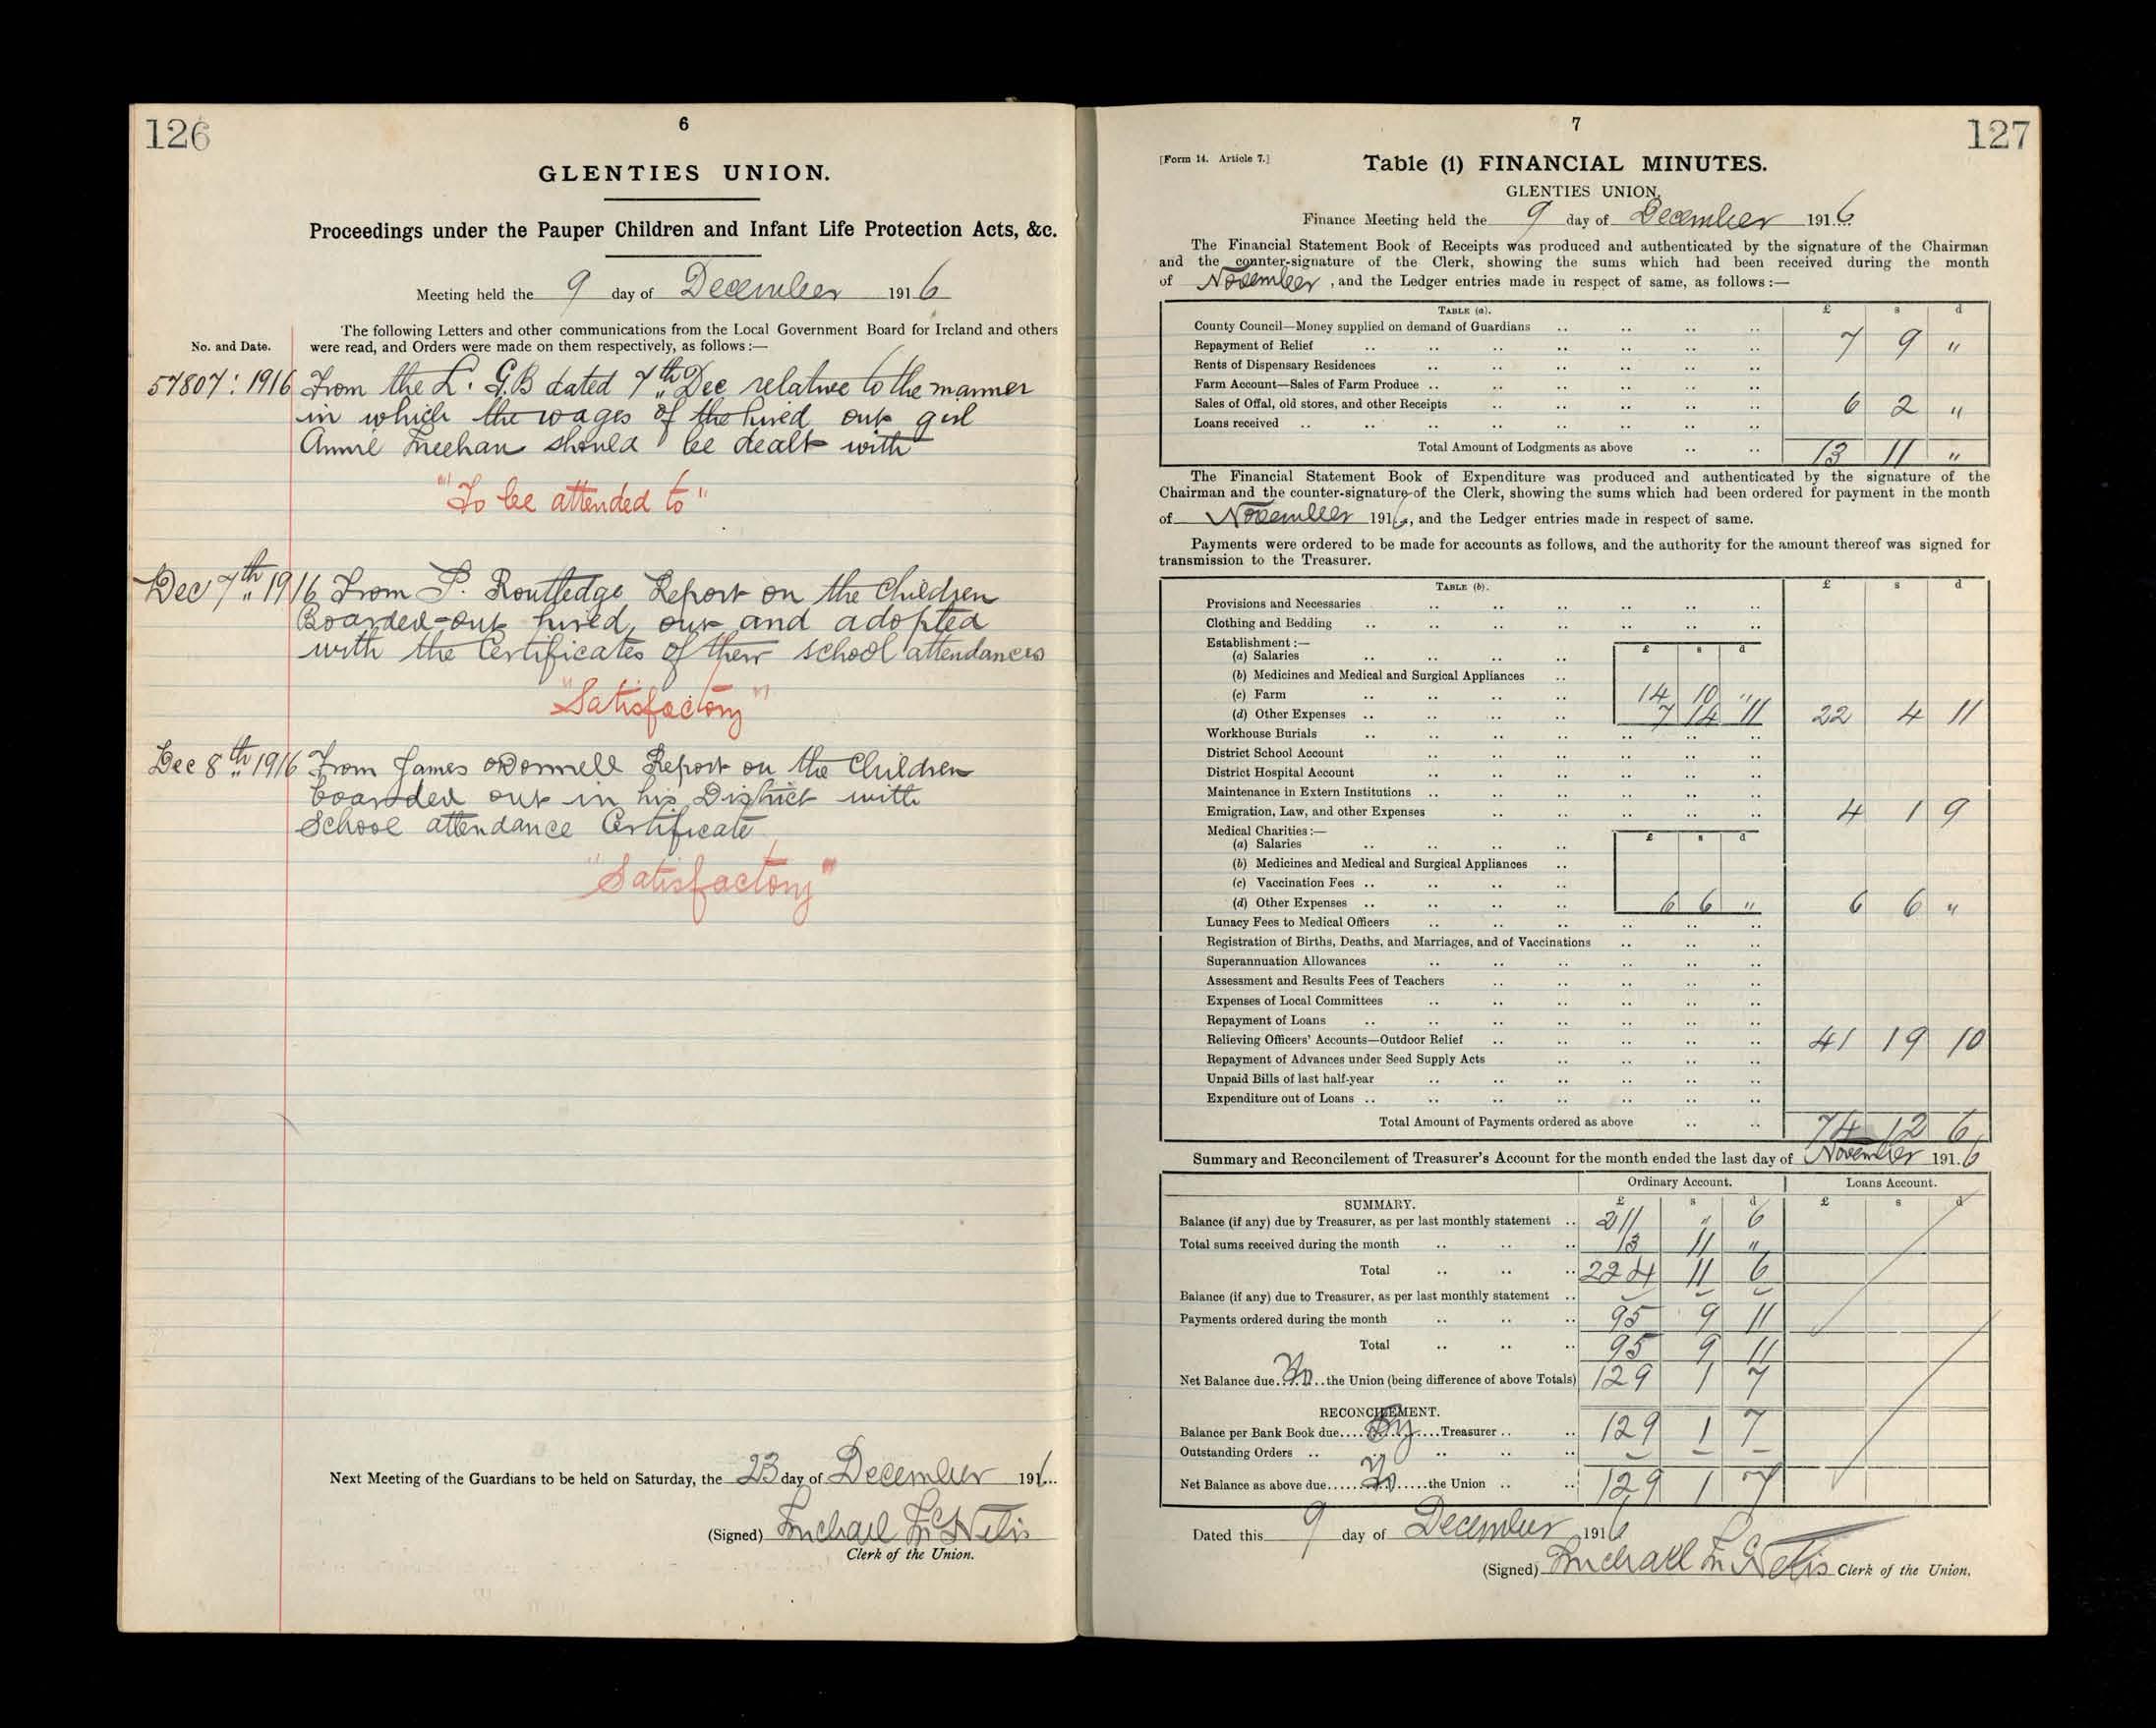 126
6
GLENTIES UNION.
Proceedings under the Pauper Children and Infant Life Protection Acts, &c.
Meeting held the 9 day of December 1916
No. and Date.
The following Letters and other communications from the Local Government Board for Ireland and others
were read, and Orders were made on them respectively, as follows :—
57807 : 1916 From the L. G.B dated 7th Dec relative to the manner
in which the wages of the hired out girl
Annie Meehan should be dealt with
"To be attended to"
Dec 7th 1916 From P. Routledge Report on the Children
Boarded-out hired out and adopted
with the Certificates of their school attendances
"Satisfactory"
Dec 8th 1916 From James O'Donnell Report on the Children
boarded out in his District with
School attendance Certificate
"Satisfactory"
Next Meeting of the Guardians to be held on Saturday, the 23 day of December 191...
(Signed) Michael McNelis
Clerk of the Union.
127
7
[Form 14. Article 7.]
Table (1) FINANCIAL MINUTES.
GLENTIES UNION.
Finance Meeting held the 9 day of December 1916
The Financial Statement Book of Receipts was produced and authenticated by the signature of the Chairman
and the counter-signature of the Clerk, showing the sums which had been received during the month
of November , and the Ledger entries made in respect of same, as follows :—
TABLE (a). £ s d
County Council—Money supplied on demand of Guardians
Repayment of Relief 7 9 "
Rents of Dispensary Residences
Farm Account—Sales of Farm Produce
Sales of Offal, old stores, and other Receipts 6 2 "
Loans received
Total Amount of Lodgments as above 13 11 "
The Financial Statement Book of Expenditure was produced and authenticated by the signature of the
Chairman and the counter-signature of the Clerk, showing the sums which had been ordered for payment in the month
of November 1916, and the Ledger entries made in respect of same.
Payments were ordered to be made for accounts as follows, and the authority for the amount thereof was signed for
transmission to the Treasurer.
TABLE (b). £ s d
Provisions and Necessaries
Clothing and Bedding
Establishment :— £ s d
(a) Salaries
(b) Medicines and Medical and Surgical Appliances
(c) Farm 14 10 "
(d) Other Expenses 7 14 11 22 4 11
Workhouse Burials
District School Account
District Hospital Account
Maintenance in Extern Institutions
Emigration, Law, and other Expenses 4 1 9
Medical Charities :— £ s d
(a) Salaries
(b) Medicines and Medical and Surgical Appliances
(c) Vaccination Fees
(d) Other Expenses 6 6 " 6 6 "
Lunacy Fees to Medical Officers
Registration of Births, Deaths, and Marriages, and of Vaccinations
Superannuation Allowances
Assessment and Results Fees of Teachers
Expenses of Local Committees
Repayment of Loans
Relieving Officers' Accounts—Outdoor Relief 41 19 10
Repayment of Advances under Seed Supply Acts
Unpaid Bills of last half-year
Expenditure out of Loans
Total Amount of Payments ordered as above 74 12 6
Summary and Reconcilement of Treasurer's Account for the month ended the last day of November 1916
Ordinary Account. Loans Account.
SUMMARY. £ s d £ s d
Balance (if any) due by Treasurer, as per last monthly statement 211 " 6
Total sums received during the month 13 11 "
Total 224 11 6
Balance (if any) due to Treasurer, as per last monthly statement
Payments ordered during the month 95 9 11
Total 95 9 11
Net Balance due the Union (being difference of above Totals) 129 1 7
RECONCILEMENT.
Balance per Bank Book due By Treasurer 129 1 7
Outstanding Orders
Net Balance as above due the Union 129 1 7
Dated this 9 day of December 1916
(Signed) Michael McNelis Clerk of the Union.